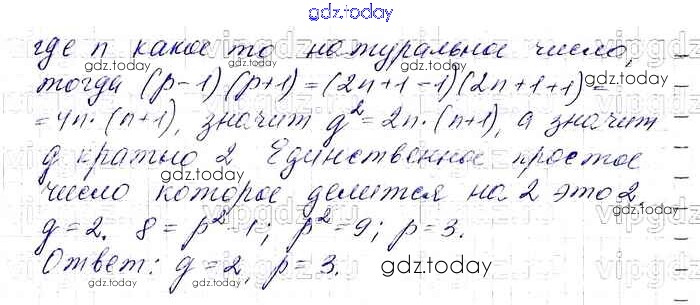 gdz.today
где n какое то натуральное число,
тогда (p-1)(p+1) = (2n+1-1)(2n+1+1) =
= 4n·(n+1), значит g² = 2n·(n+1), а значит
g кратно 2 Единственное простое
число которое делится на 2 это 2.
g = 2. 8 = p² 1; p² = 9; p = 3.
Ответ: g = 2, p = 3.
gdz.today
gdz.today
gdz.today
gdz.today
gdz.today
gdz.today